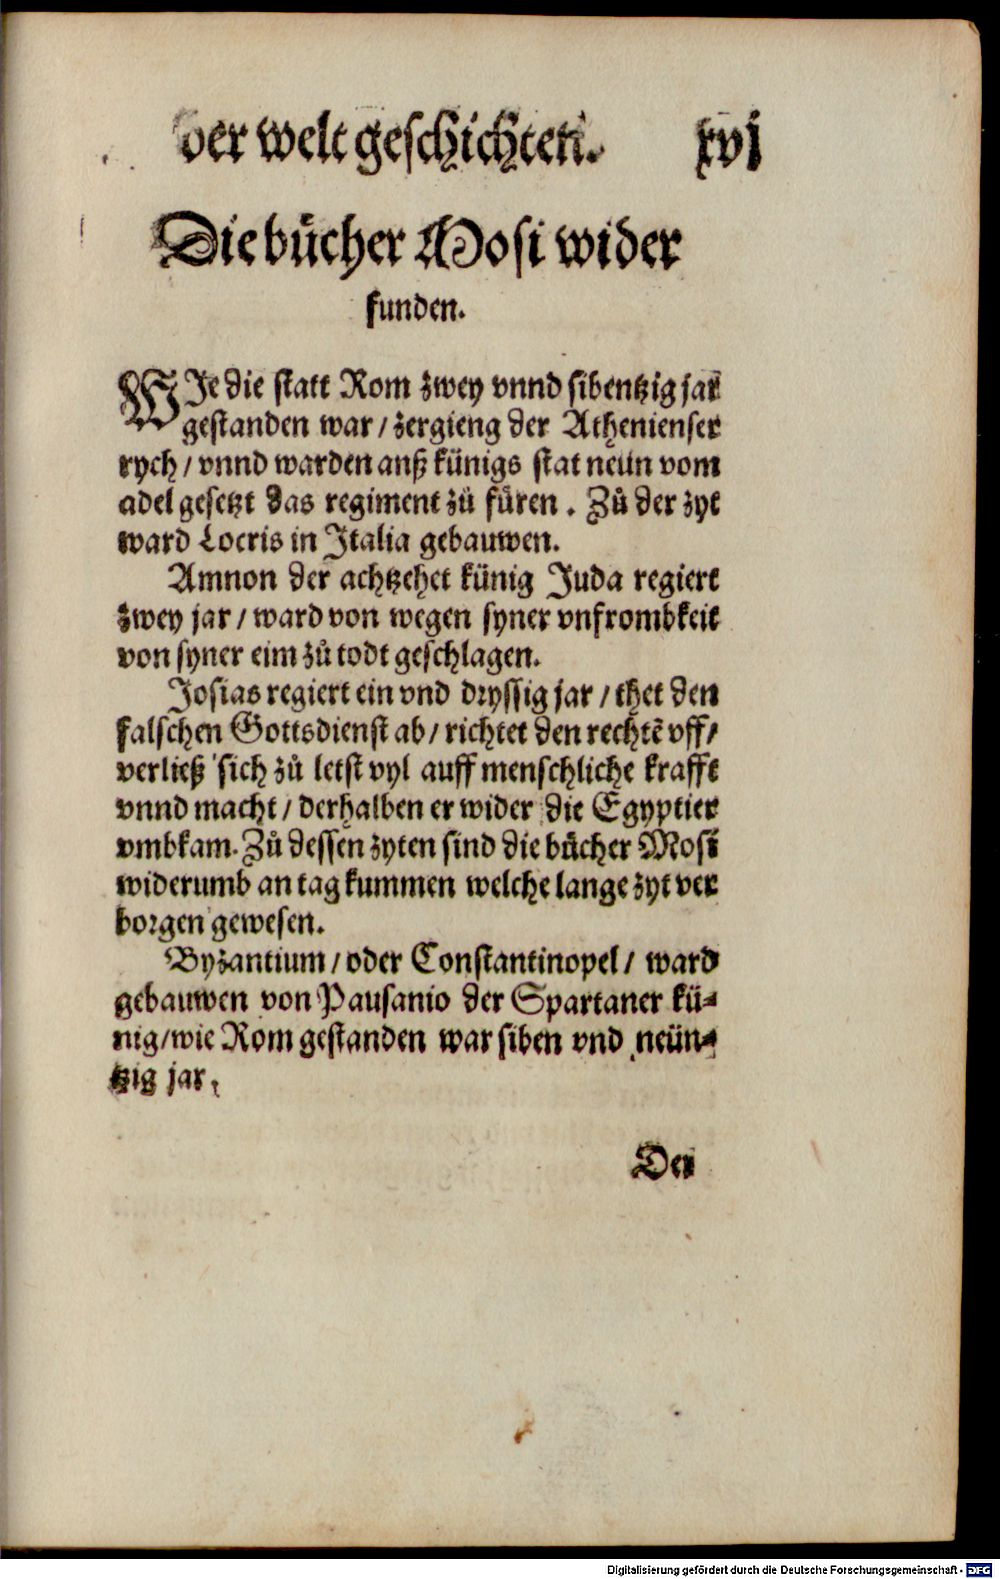 der welt geschichten. xvj
Die bücher Mosi wider
funden.
WJe die statt Rom zwey vnnd sibentzig jar
gestanden war / zergieng der Athenienser
rych / vnnd warden anß künigs stat neün vom
adel gesetzt das regiment zů fůren. Zů der zyt
ward Locris in Jtalia gebauwen.
Amnon der achtzehet künig Juda regiert
zwey jar / ward von wegen syner vnfrombkeit
von syner eim zů todt geschlagen.
Josias regiert ein vnd dryssig jar / thet den
falschen Gottsdienst ab / richtet den rechtē vff /
verließ sich zů letst vyl auff menschliche krafft
vnnd macht / derhalben er wider die Egyptier
vmbkam. Zů dessen zyten sind die bücher Mosi
widerumb an tag kummen welche lange zyt ver
borgen gewesen.
Byzantium / oder Constantinopel / ward
gebauwen von Pausanio der Spartaner kü⸗
nig / wie Rom gestanden war siben vnd neün⸗
tzig jar.
Der
Digitalisierung gefördert durch die Deutsche Forschungsgemeinschaft - DFG